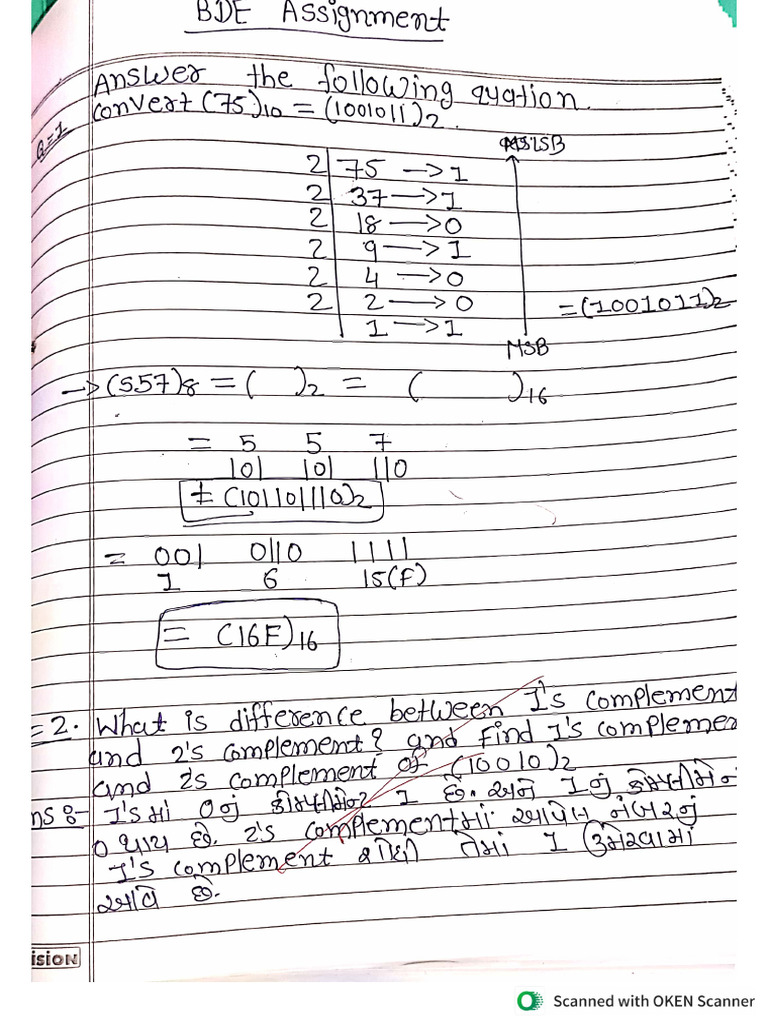 BDE Assignment
Answer the following quation.
Q=1 convert (75)10 = (1001011)2.
LSB
2 75 → 1
2 37 → 1
2 18 → 0
2 9 → 1
2 4 → 0
2 2 → 0 = (1001011)2
1 → 1
MSB
→ (557)8 = ( )2 = ( )16
= 5 5 7
101 101 110
= (101101110)2
= 001 0110 1111
1 6 15(F)
= (16F)16
=2. What is difference between 1's complement
and 2's complement? and Find 1's complemen
and 2s complement of (10010)2
ns :- 1's માં 0 નું કોમ્પ્લીમેન્ટ 1 છે. અને 1 નું કોમ્પ્લીમેન
0 થાય છે. 2's complement માં આપેલ નંબર નું
1's complement શોધી તેમાં 1 ઉમેરવામાં
આવે છે.
ision
Scanned with OKEN Scanner